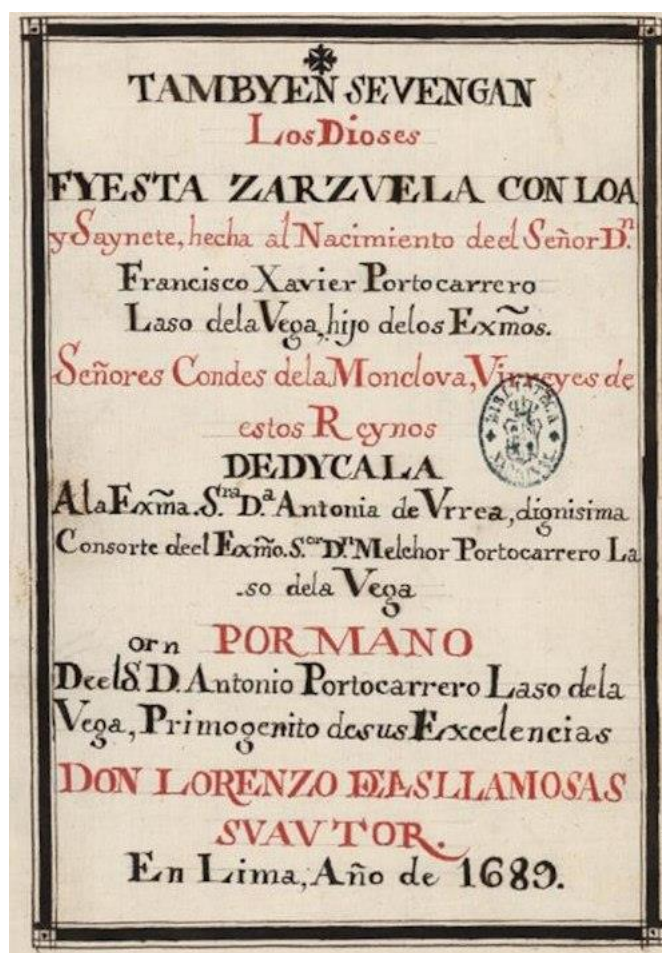 TAMBYEN SEVENGAN
Los Dioses
FYESTA ZARZVELA CON LOA
y Saynete, hecha al Nacimiento deel Señor D.ⁿ
Francisco Xavier Portocarrero
Laso dela Vega, hijo delos Exm̃os.
Señores Condes dela Monclova, Virreyes de
estos Reynos
DEDYCALA
A la Exm̃a. S.ʳᵃ D.ª Antonia de Vrrea, dignisima
Consorte deel Exm̃o. S.ᵒʳ D.ⁿ Melchor Portocarrero La
so dela Vega
POR MANO
or n
Deel S. D. Antonio Portocarrero Laso dela
Vega, Primogenito desus Excelencias
DON LORENZO DELAS LLAMOSAS
SVAVTOR.
En Lima, Año de 1689.
BIBLIOTECA